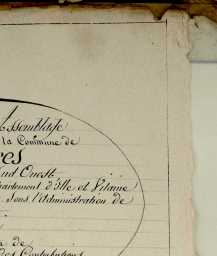 Assemblage
la Commune de
res
Sud Ouest.
artement d'Ille et Vilaine
Sous l'Administration de
de
des Contributions